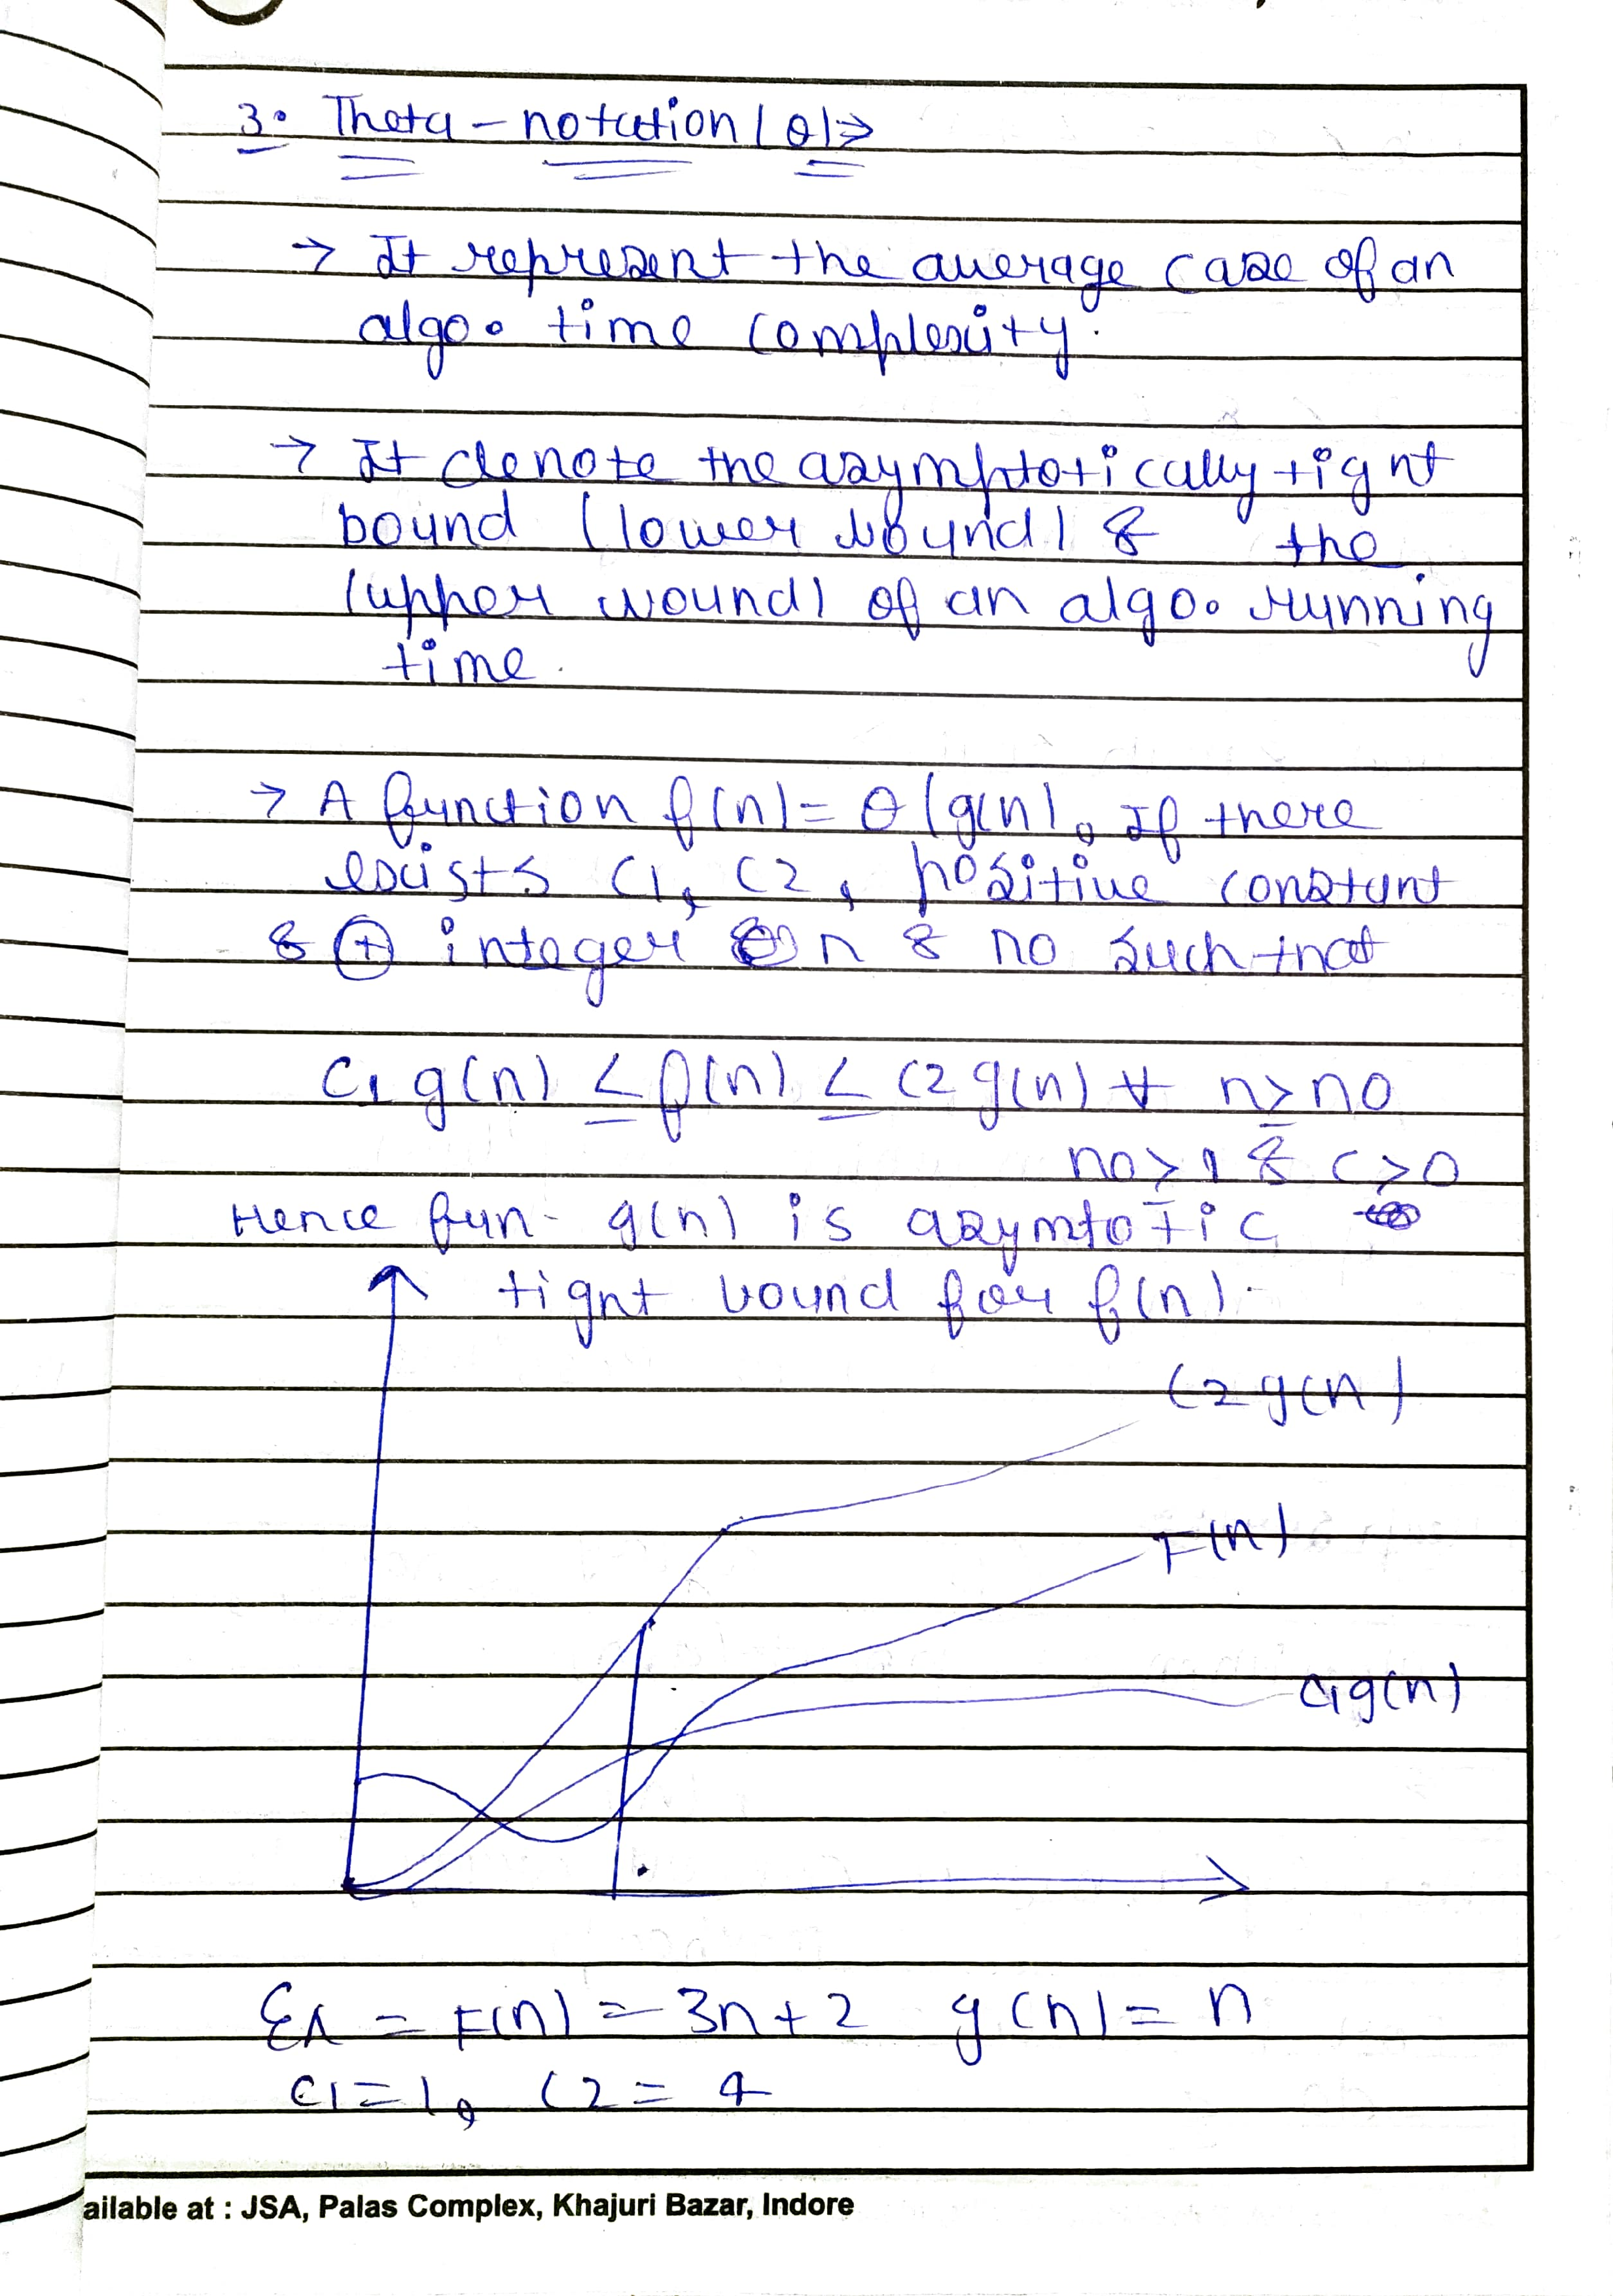 3. Theta - notation (θ) ⇒
→ It represent the average case of an
algo. time complexity.
→ It denote the asymptotically tignt
bound (lower bound) & the
(upper wound) of an algo. running
time.
→ A function f(n) = θ(g(n), If there
exists C1, C2, positive constant
& ⊕ integer n & no such that
C1 g(n) ≤ f(n) ≤ C2 g(n) ∀ n ≥ no
no ≥ 1 & C > 0
Hence fun- g(n) is asymtotic
tignt bound for f(n).
C2 g(n)
F(n)
C1g(n)
Ex = F(n) = 3n+2 g(n) = n
C1 = 1, C2 = 4
ailable at : JSA, Palas Complex, Khajuri Bazar, Indore